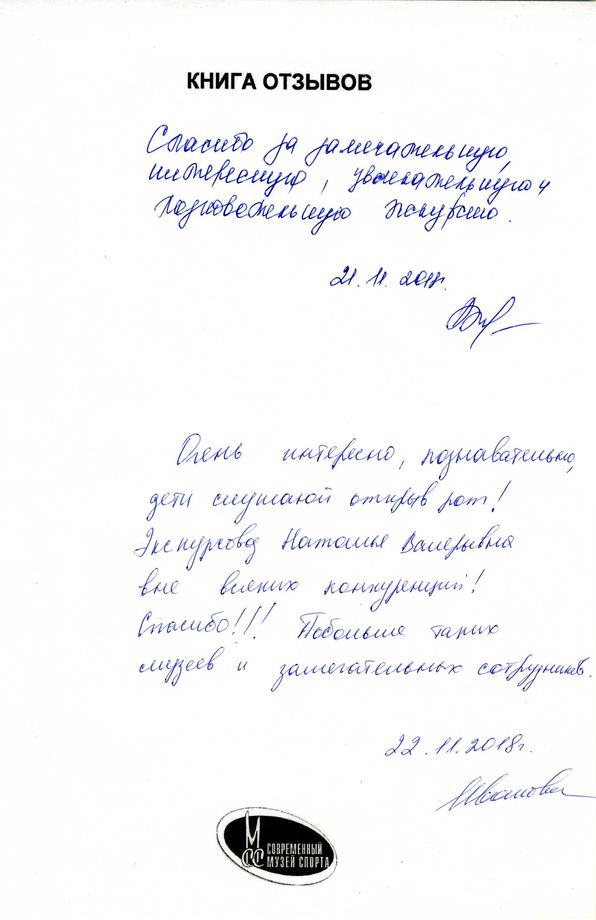 КНИГА ОТЗЫВОВ
Спасибо за замечательную,
интересную, увлекательную и
познавательную экскурсию.
21.11.2018г.
Очень интересно, познавательно,
дети слушают открыв рот!
Экскурсовод Наталья Валерьевна
вне всяких конкуренций!
Спасибо!!! Побольше таких
музеев и замечательных сотрудников.
22.11.2018г.
МСС СОВРЕМЕННЫЙ
МУЗЕЙ СПОРТА